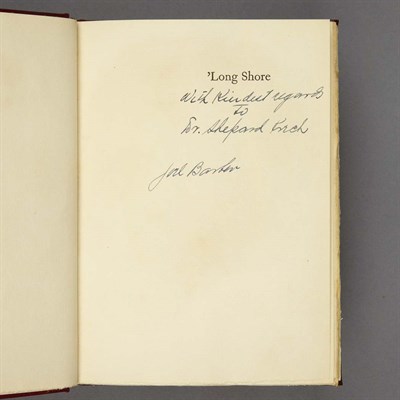 'Long Shore
With Kindest regards
to
Dr. Shepard Krech
Joel Barber